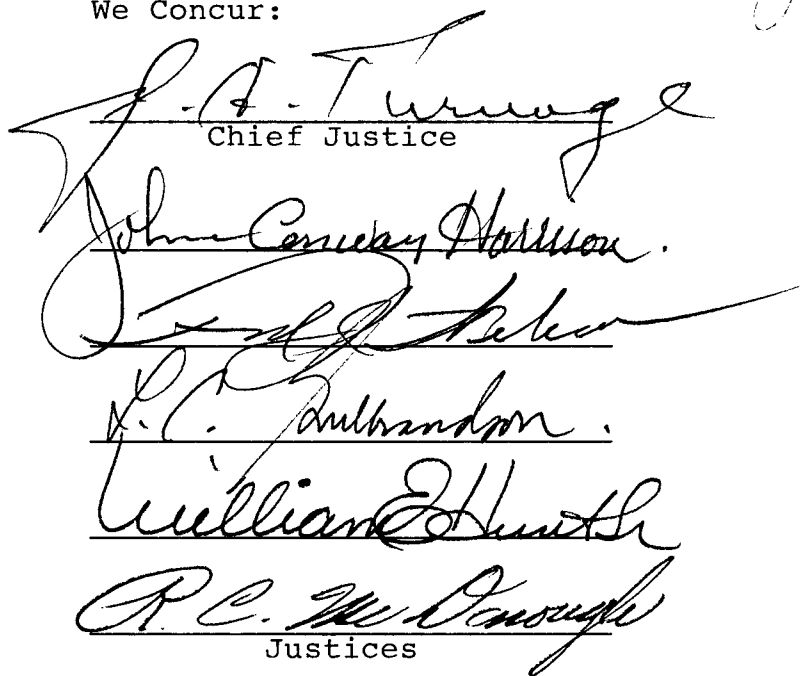 We Concur:
J. A. Turnage
Chief Justice
John Conway Harrison.
L. C. Gulbrandson.
William E Hunt Sr
R. C. McDonough
Justices